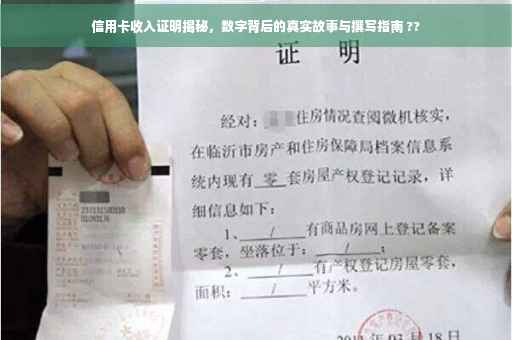 信用卡收入证明揭秘，数字背后的真实故事与撰写指南??
证 明
经对：住房情况查阅微机核实，
在临沂市房产和住房保障局档案信息系
统内现有 零 套房屋产权登记记录，详
细信息如下：
1、 / 有商品房网上登记备案
零套，坐落位于： / ；
2、 / 有产权登记房屋零套，
面积： / 平方米。
月 18 日